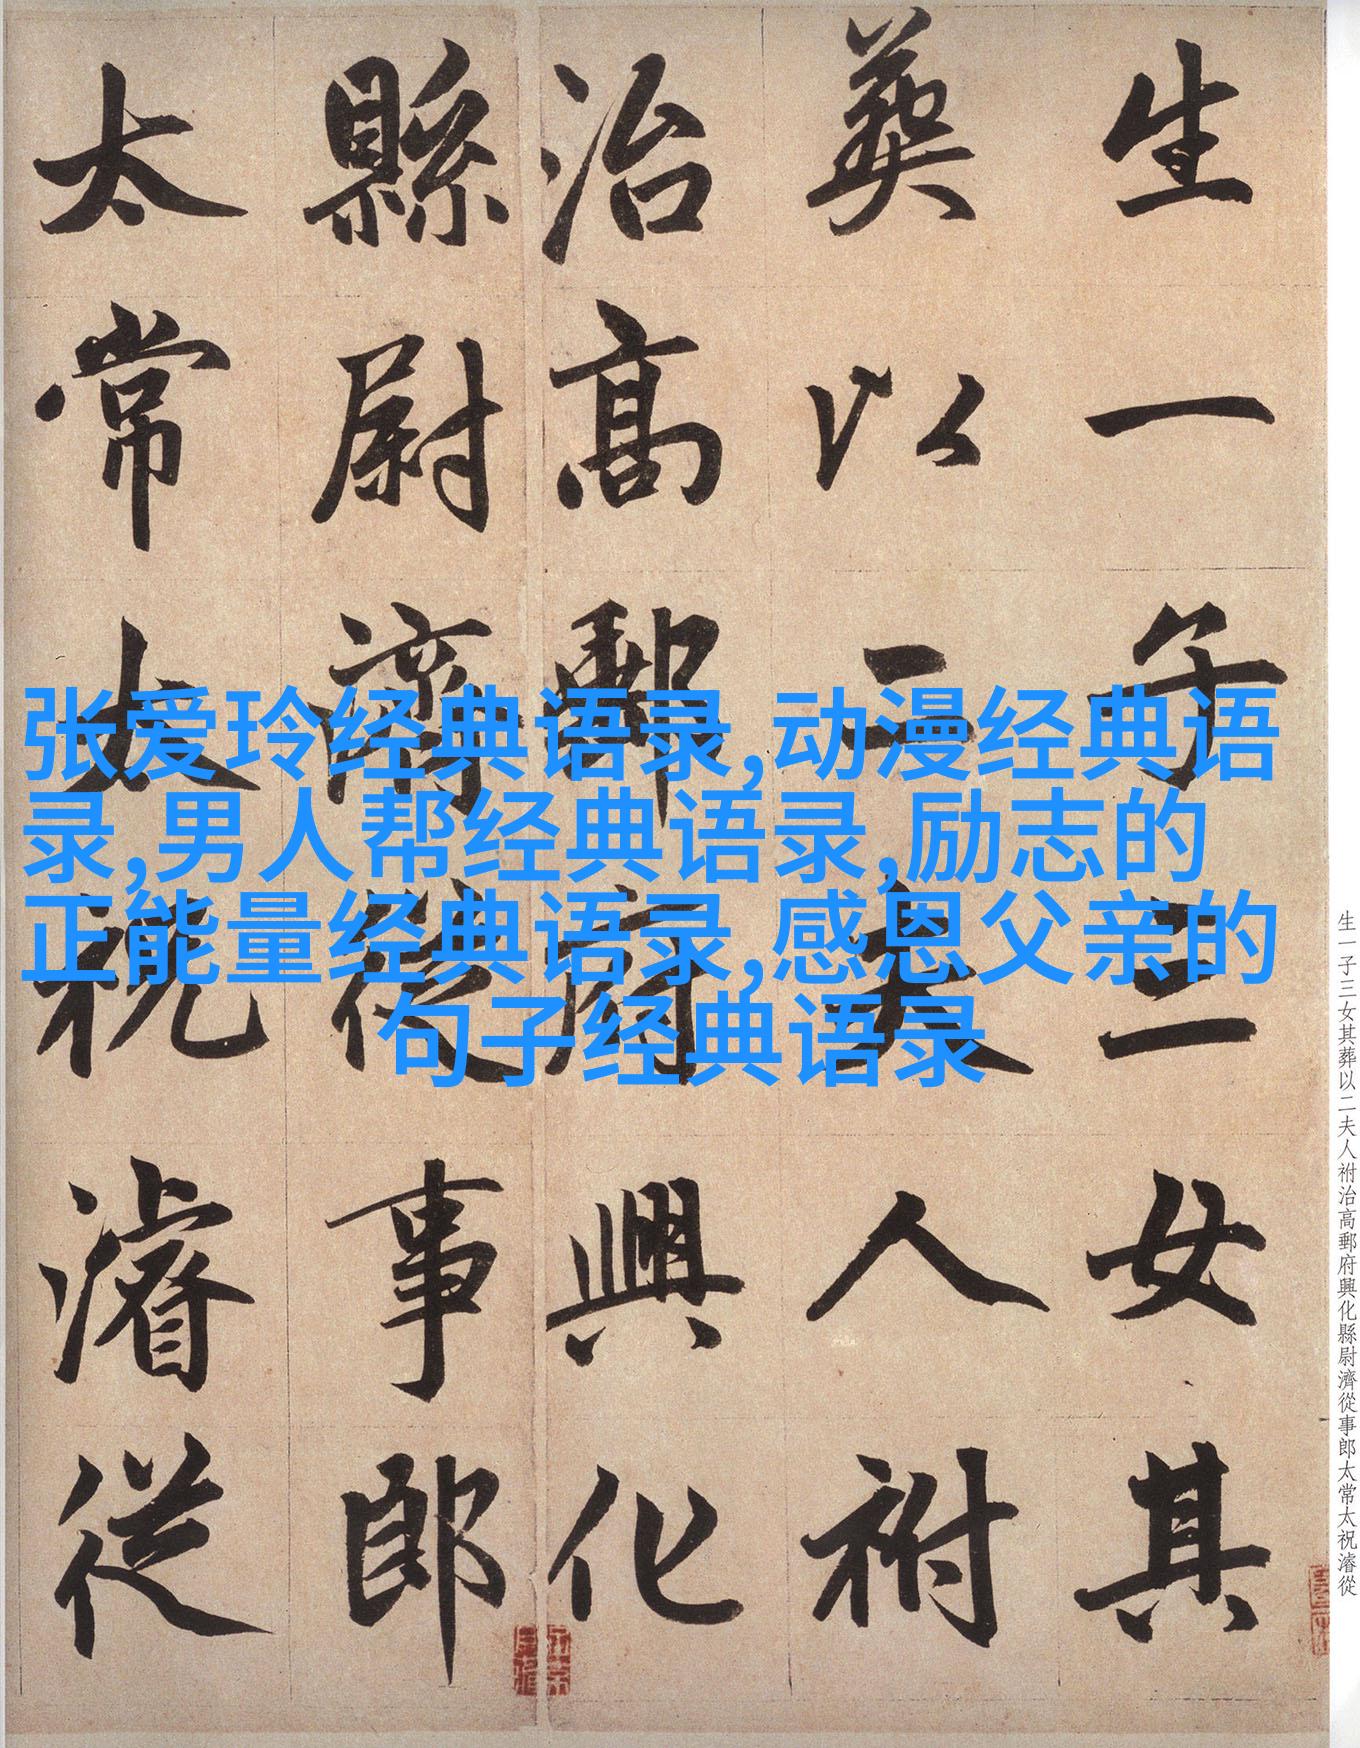 生一子三女其
葬以二夫人祔
治高郵府興化
縣尉濟從事郎
太常太祝濬從
张爱玲经典语录,动漫经典语
录,男人帮经典语录,励志的
正能量经典语录,感恩父亲的
句子经典语录
生一子三女其葬以二夫人祔治高郵府興化縣尉濟從事郎太常太祝濬從